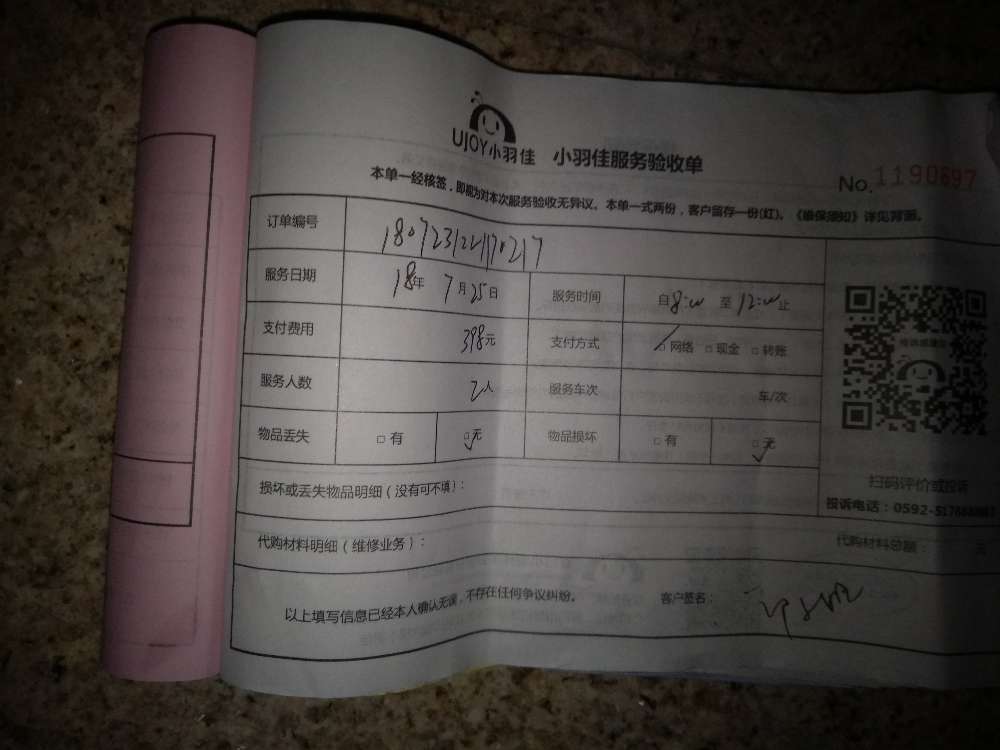 UJOY小羽佳 小羽佳服务验收单
No. 1190697
本单一经核签，即视为对本次服务验收无异议。本单一式两份，客户留存一份(红)。《维保须知》详见背面。
订单编号
服务日期 18年 7月25日 服务时间 自8:00 至 12:00止
支付费用 398元 支付方式 □网络 □现金 □转账
服务人数 2人 服务车次 车/次
物品丢失 □有 □无 物品损坏 □有 □无
损坏或丢失物品明细（没有可不填）：
扫码评价或投诉
投诉电话：0592-
代购材料明细（维修业务）： 代购材料总额： 元
以上填写信息已经本人确认无误，不存在任何争议纠纷。 客户签名：